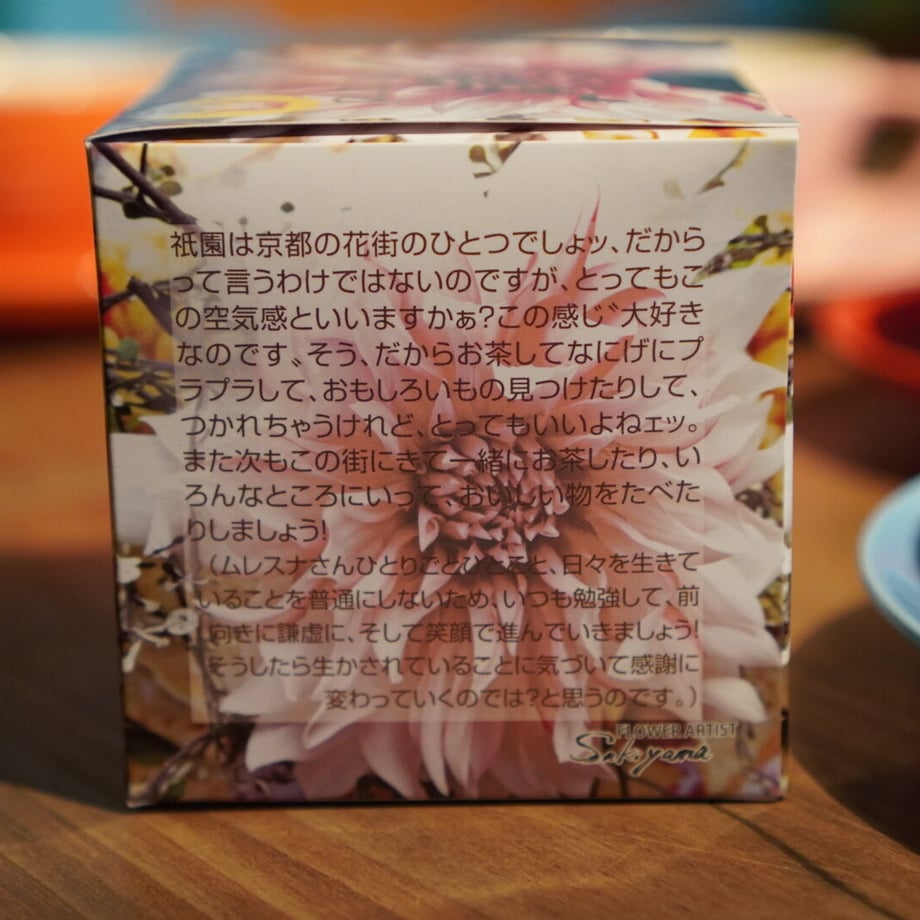 祇園は京都の花街のひとつでしょッ、だから
って言うわけではないのですが、とってもこ
の空気感といいますかぁ?この感じ〝大好き
なのです〟そう、だからお茶してなにげにプ
ラプラして、おもしろいもの見つけたりして、
つかれちゃうけれど、とってもいいよねェッ。
また次もこの街にきて一緒にお茶したり、い
ろんなところにいって、おいしい物をたべた
りしましょう!
(ムレスナさんひとりごとひとこと、日々を生きて
いることを普通にしないため、いつも勉強して、前
向きに謙虚に、そして笑顔で進んでいきましょう!
そうしたら生かされていることに気づいて感謝に
変わっていくのでは?と思うのです。)
FLOWER ARTIST
Sakuyama